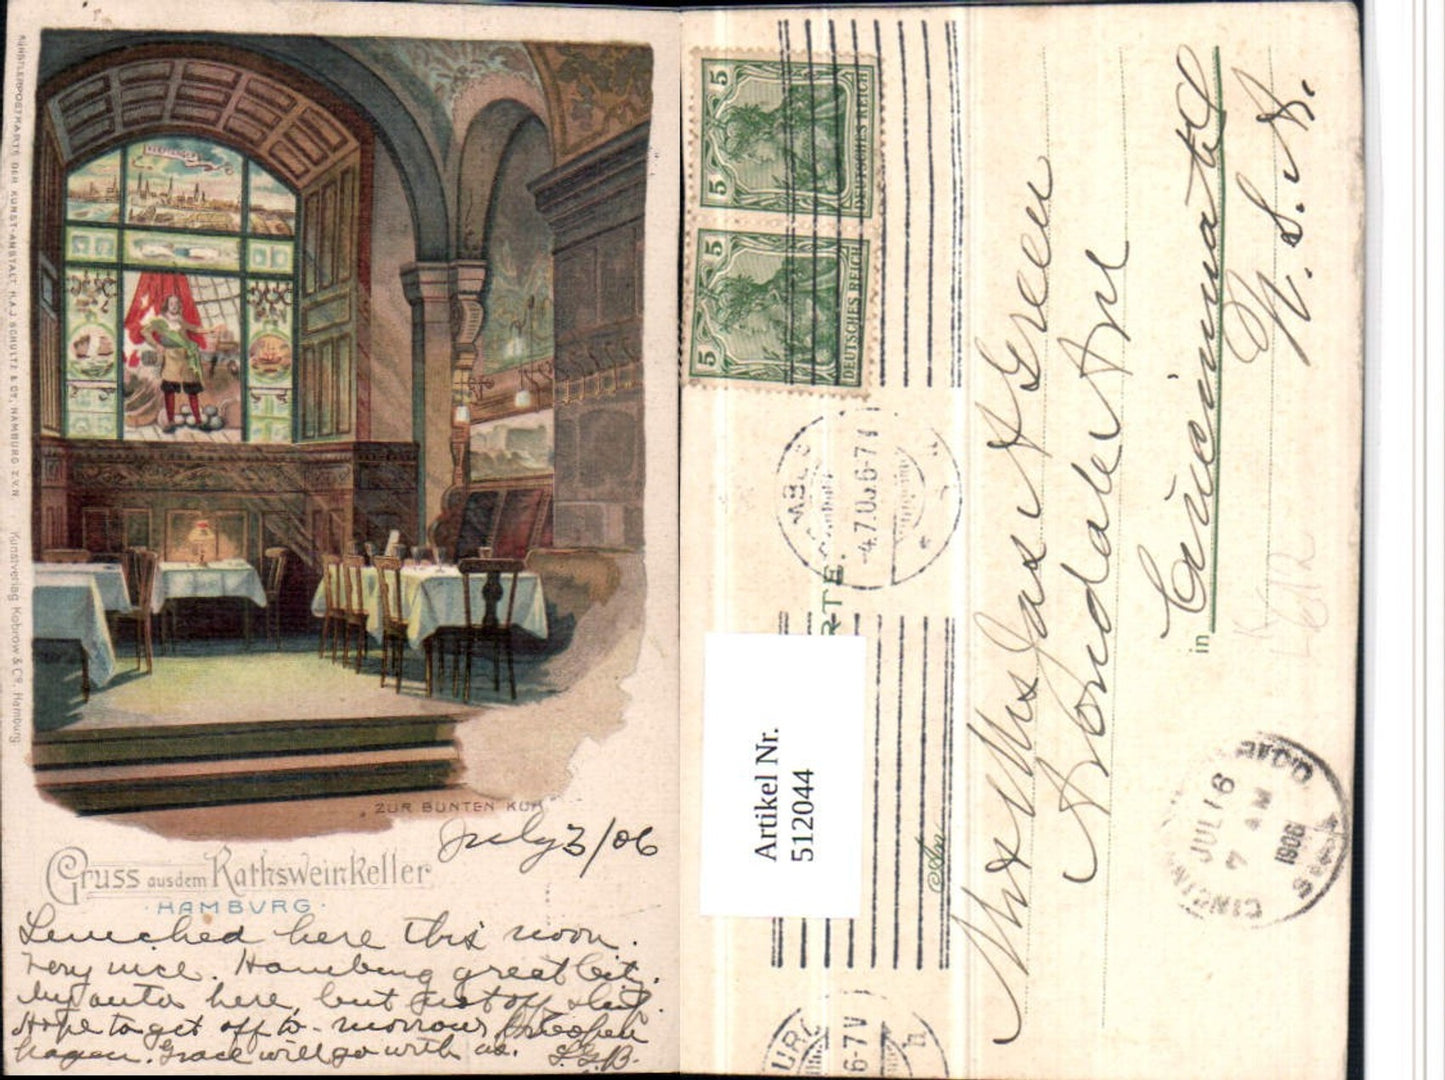 KÜNSTLERPOSTKARTE DER KUNST-ANSTALT H.A.J. SCHULTZ & Co., HAMBURG
Kunstverlag Kobrow & Co. Hamburg
ZUR BUNTEN KUH
July 3/06
Gruss aus dem Rathsweinkeller
HAMBURG
Lunched here this noon.
Very nice. Hamburg great City.
My auto here, but just off ship.
Hope to get off to-morrow for Copen
hagen. Grace will go with us. L.G.B.
5 5
DEUTSCHES REICH
5 5
DEUTSCHES REICH
4.7.06.6-7
RTE.
Artikel Nr.
512044
Mr & Mrs Jas. A Green
Avondale Ave
in Cincinnati
U.S.A.
CINCIN
JUL 16
7 AM
1906
REC'D
URG
6-7 V